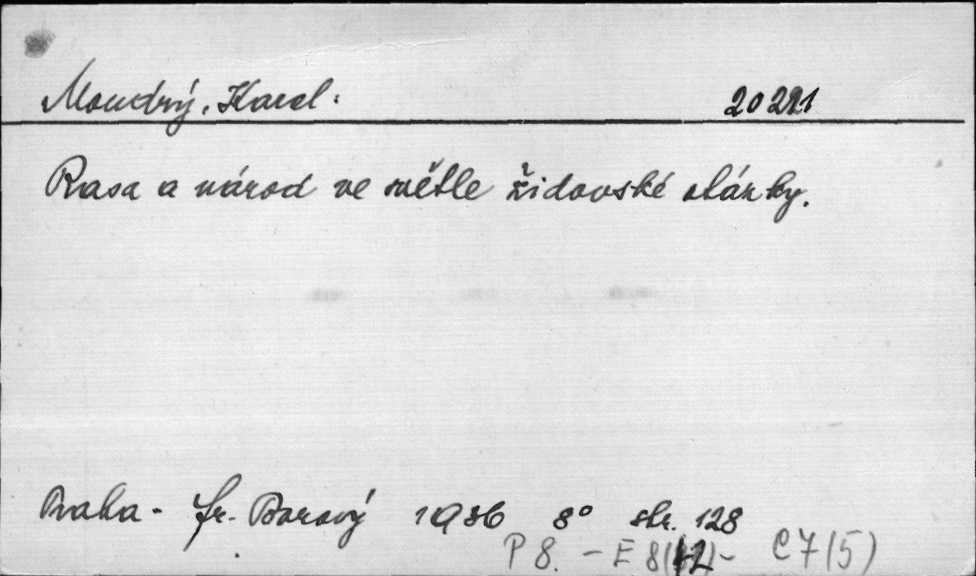 Moudrý, Karel. 20 291
Rasa a národ ve světle židovské otázky.
Praha - Fr. Borový 1936 8° str. 128
P 8. - E 8(12) - C 7(5)